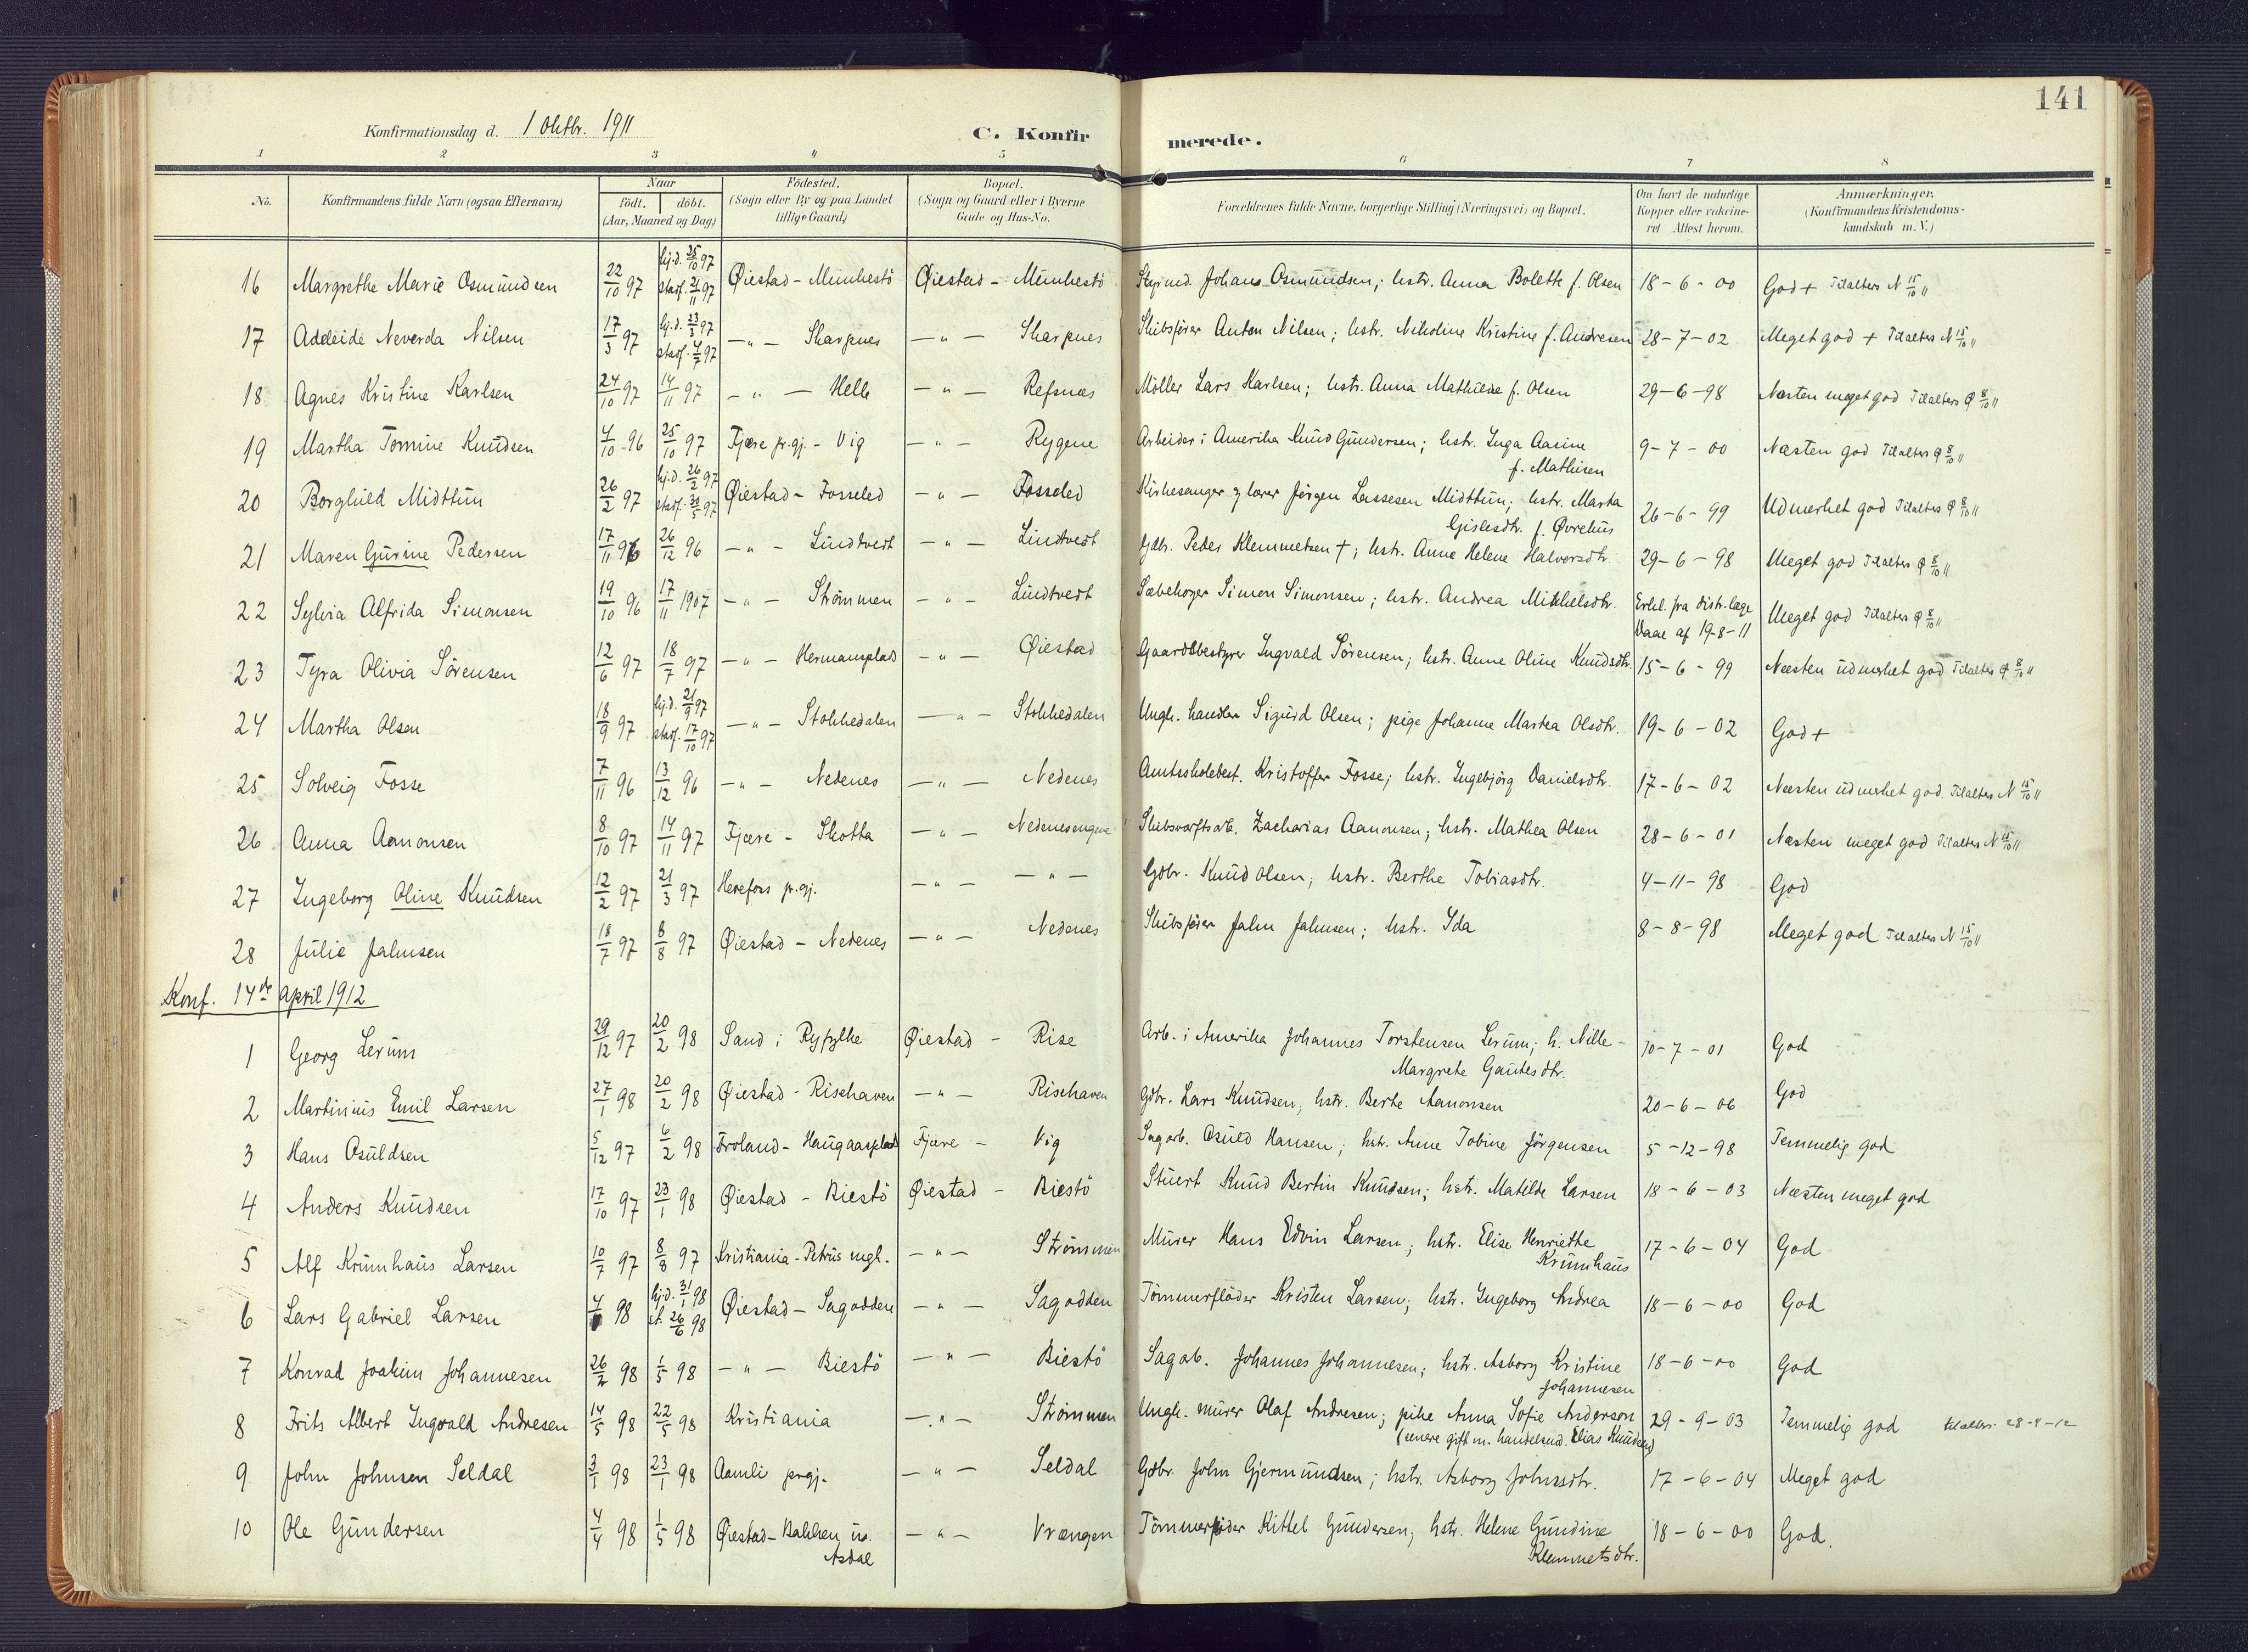 141
Konfirmationsdag d. 1 Oktbr. 1911
C. Konfirmerede.
1 2 3 4 5 6 7 8
No. Konfirmandens fulde Navn (ogsaa Efternavn) Naar födt. döbt. (Aar, Maaned og Dag) Födested. (Sogn eller By og paa Landet tillige Gaard) Bopæl. (Sogn og Gaard eller i Byerne Gade og Hus-No. Forældrenes fulde Navne, borgerlige Stilling (Næringsvei) og Bopæl. Om havt de naturlige Kopper eller vakcineret Attest herom. Anmærkninger. (Konfirmandens Kristendomskundskab m. V.)
16 Margrethe Marie Osmundsen 22/10 97 hj.d. 25/10 97 stadf. 21/11 97 Øiestad - Munkestö Øiestad - Munkestö Styrmd. Johans Osmundsen; hstr. Anna Bolette f. Olsen 18-6-00 God + Tilalters N 15/10 "
17 Adeleide Neverda Nilsen 17/3 97 hj.d. 23/3 97 stadf. 4/7 97 -"- Skarpnes -"- Skarpnes Skibsfører Anton Nilsen; hstr. Nikoline Kristine f. Andresen 28-7-02 Meget god + Tilalters N 15/10 "
18 Agnes Kristine Karlsen 24/10 97 14/11 97 -"- Helle -"- Refsnæs Möller Lars Karlsen; hstr. Anna Mathilde f. Olsen 29-6-98 Næsten meget god Tilalters Ø 8/10 "
19 Martha Tomine Knudsen 4/10 96 25/10 97 Fjære pr.gj. - Vig -"- Rygene Arbeider i Amerika Knud Gundersen; hstr. Inga Aasine f. Mathisen 9-7-00 Næsten god Tilalters Ø 8/10 "
20 Borghild Midttun 26/2 97 hj.d. 26/2 97 stadf. 30/5 97 Øiestad - Fosseled -"- Fosseled Kirkesanger & lærer Jörgen Lassesen Midttun; hstr. Marta Gislesdtr. f. Øvrehus 26-6-99 Udmerket god Tilalters Ø 8/10 "
21 Maren Gurine Pedersen 17/11 96 26/12 96 -"- Lindtvedt -"- Lindtvedt Gdbr. Peder Klemmetsen +; hstr. Anne Helene Halvorsdtr. 29-6-98 Meget god Tilalters Ø 8/10 "
22 Sylvia Alfrida Simonsen 19/10 96 17/11 1907 -"- Strömmen -"- Lindtvedt Sæbekoger Simon Simonsen; hstr. Andrea Mikkelsdtr. Erkl. fra distr.læge Vaae af 19-8-11 Meget god Tilalters Ø 8/10 "
23 Tyra Olivia Sörensen 12/6 97 18/7 97 -"- Hermansplads -"- Øiestad Gaardsbestyrer Ingvald Sörensen; hstr. Anne Oline Knudsdtr. 15-6-99 Næsten udmerket god Tilalters Ø 8/10 "
24 Martha Olsen 18/9 97 hj.d. 21/9 97 stadf. 17/10 97 -"- Stokkedalen -"- Stokkedalen Ungk. handler Sigurd Olsen; pige Johanne Martea Olsdtr. 19-6-02 God +
25 Solveig Fosse 7/11 96 13/12 96 -"- Nedenes -"- Nedenes Amtsskolebest. Kristoffer Fosse; hstr. Ingebjörg Danielsdtr. 17-6-02 Næsten udmerket god. Tilalters N 15/10 "
26 Anna Aanonsen 8/10 97 14/11 97 Fjære - Skotta -"- Nedenesengene Skibsværftsarb. Zacharias Aanonsen; hstr. Mathea Olsen 28-6-01 Næsten meget god Tilalters N 15/10 "
27 Ingeborg Oline Knudsen 12/2 97 21/3 97 Herefoss p.gj. -"- -"- Gdbr. Knud Olsen; hstr. Berthe Tobiasdtr. 4-11-98 God
28 Julie Jahnsen 18/7 97 8/8 97 Øiestad - Nedenes -"- Nedenes Skibsfører Jahn Jahnsen; hstr. Ida 8-8-98 Meget god Tilalters N 15/10 "
Konf. 14de april 1912
1 Georg Lerum 29/12 97 20/2 98 Sand i Ryfylke Øiestad - Rise Arb. i Amerika Johannes Torstensen Lerum; h. Nille - Margrete Gautesdtr. 10-7-01 God
2 Martinius Emil Larsen 27/1 98 20/2 98 Øiestad - Risehaven -"- Risehaven Gdbr. Lars Knudsen; hstr. Berte Aanonsen 20-6-06 God
3 Hans Osuldsen 5/12 97 6/2 98 Froland - Haugaasplads Fjære - Vig Sagarb. Osuld Hansen; hstr. Anne Tobine Jörgensen 5-12-98 Temmelig god
4 Anders Knudsen 17/10 97 23/1 98 Øiestad - Biestö Øiestad - Biestö Stuert Knud Bertin Knudsen; hstr. Matilde Larsen 18-6-03 Næsten meget god
5 Alf Krumhaus Larsen 10/7 97 8/8 97 Kristiania - Petrus mgl. -"- Strömmen Murer Hans Edvin Larsen; hstr. Elise Henriette Krumhaus 17-6-04 God
6 Lars Gabriel Larsen 4/1 98 hj.d. 31/1 98 st. 26/6 98 Øiestad - Sagodden -"- Sagodden Tömmerflöder Kristen Larsen; hstr. Ingeborg Andrea 18-6-00 God
7 Konrad Joakim Johannesen 26/2 98 1/5 98 -"- Biestö -"- Biestö Sagarb. Johannes Johannesen; hstr. Asborg Kristine Johannesen 18-6-00 God
8 Frits Albert Ingvald Andresen 14/5 98 22/5 98 Kristiania -"- Strömmen Ungk. murer Olaf Andresen; pike Anna Sofie Anderson (senere gift m. handelsmd. Elias Knudsen) 29-9-03 Temmelig god tilalters 28-4-12
9 John Johnsen Seldal 3/1 98 23/1 98 Aamli prgj. -"- Seldal Gdbr. John Gjermundsen; hstr. Asborg Johnsdtr. 17-6-04 Meget god
10 Ole Gundersen 4/4 98 1/5 98 Øiestad - Bakken u. Asdal -"- Vrængen Tömmerflöder Kittel Gundersen; hstr. Helene Gundine Klemmetsdtr. 18-6-00 God.